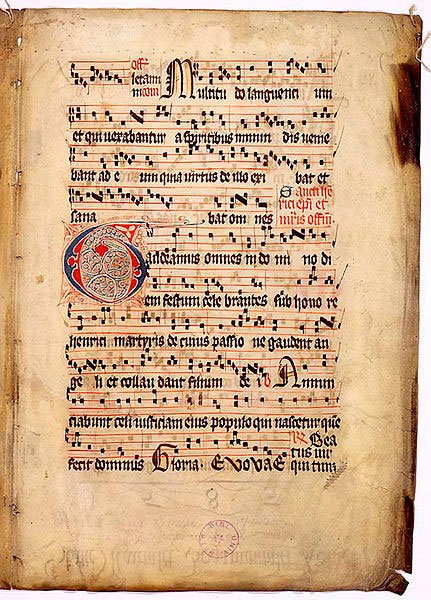 off
letam
nicom Multitu do languenci um
et qui vexabantur a spiritibus inmun dis venie
bant ad e um quia virtus de illo exi bat et
sana bat om nes Sancti he
rici epi et
mris offm
Gaudeamus omnes in do mi no di
em festum cele brantes sub hono re
henrici martyris de cuius passio ne gaudent an
ge li et collau dant filium de i Annun
ciabunt celi iusticiam eius populo qui nascetur que
fecit dominus Gloria EVOVAE Bea
tus vir
qui tim